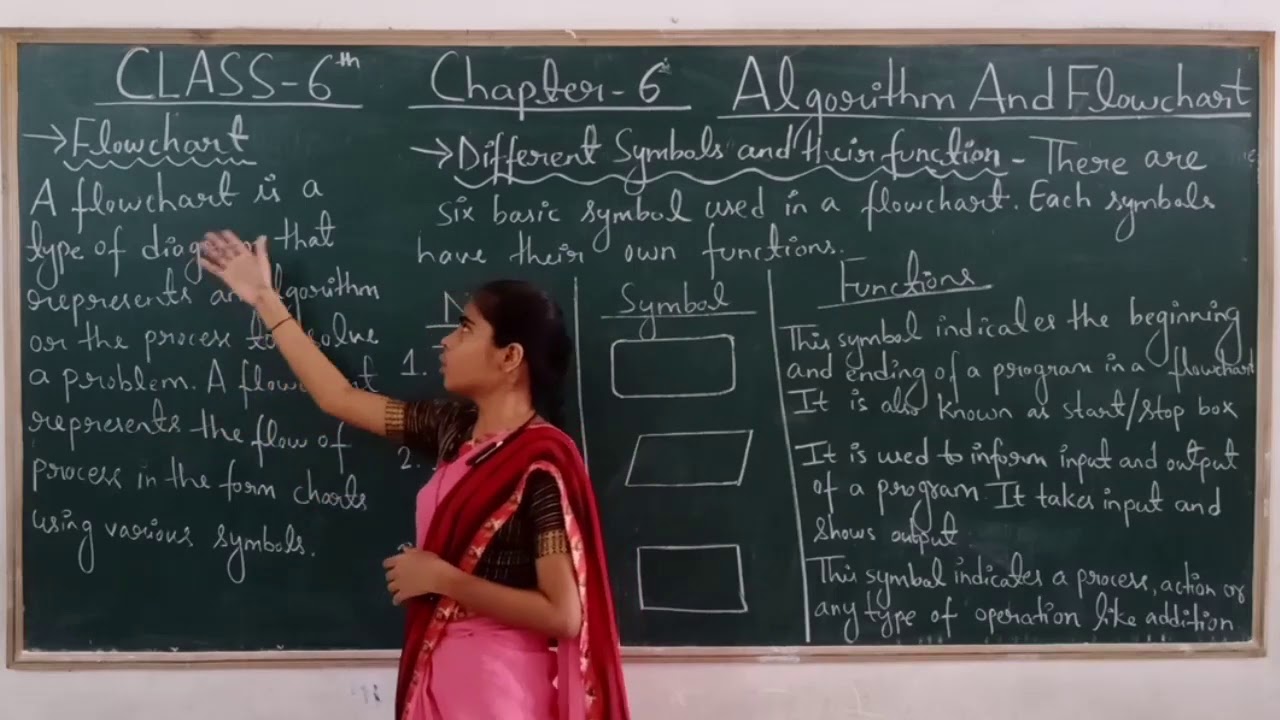 CLASS-6th Chapter-6 Algorithm And Flowchart
→Flowchart
A flowchart is a
type of that
represents algorithm
or the process to solve
a problem. A
represents the flow of
process in the form charts
using various symbols.
→Different Symbols and their function - There are
six basic symbol used in a flowchart. Each symbols
have their own functions.
Symbol
Functions
1.
This symbol indicates the beginning
and ending of a program in a flowchart
It is also known as start/stop box
2.
It is used to inform input and output
of a program. It takes input and
shows output
This symbol indicates a process, action or
any type of operation like addition